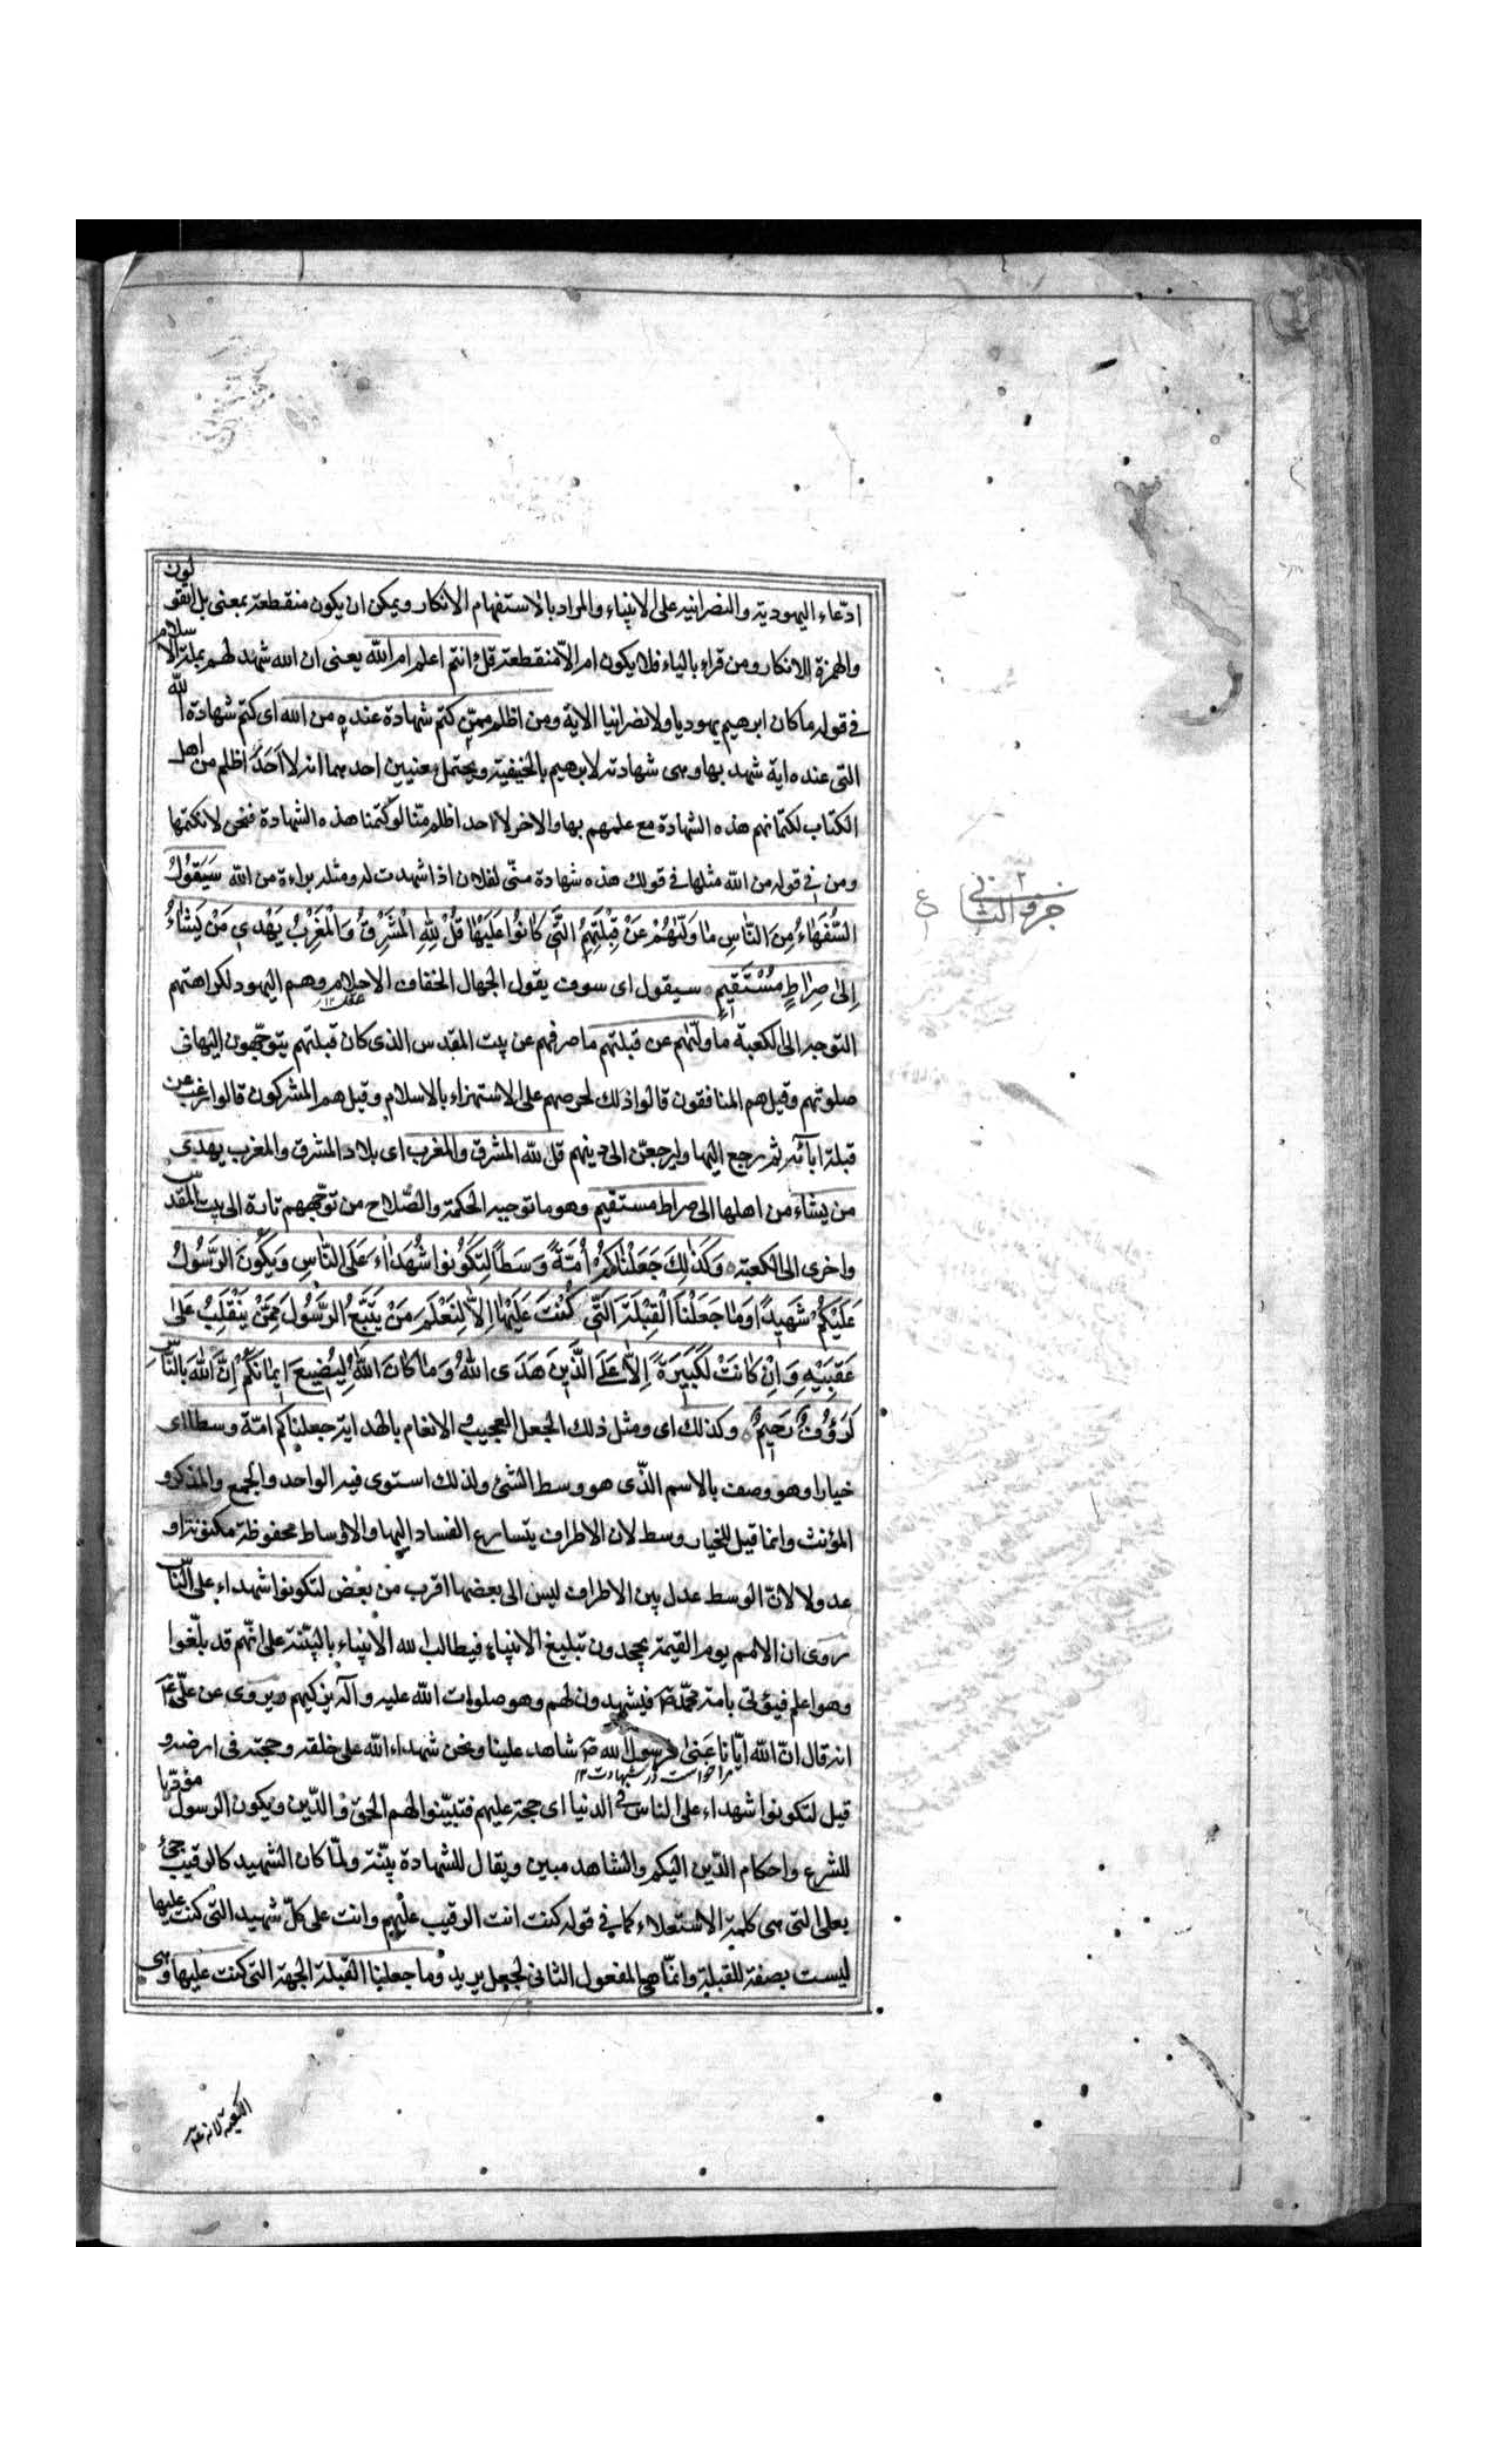 ادّعاء اليهودية والنصرانيه على الانبياء والمراد بالاستفهام الانكار ويمكن ان يكون منقطعة بمعنى بل اتقولون
والهمزة للانكار ومن قراء بالياء فلا يكون ام الّا منقطعة قل ءانتم اعلم ام الله يعنى ان الله شهد لهم بملة الاسلام
فى قوله ما كان ابرهيم يهوديا ولا نصرانيا الاية ومن اظلم ممّن كتم شهادة عنده من الله اى كتم شهادة الله
التى عنده انه شهد بها وهى شهادته لابرهيم بالحنيفية ويحتمل معنيين احدهما انه لا اَحَدَ اظلم من اهل
الكتاب لكتمانهم هذه الشهادة مع علمهم بها والاخر لا احد اظلم منّا لو كتمنا هذه الشهادة فنحن لا نكتمها
ومن فى قوله من الله مثلها فى قولك هذه شهادة منّى لفلان اذا شهدت له ومثله براءة من الله سَيَقُولُ
السُّفَهَاءُ مِنَ النَّاسِ مٰا وَلّٰىهُمْ عَنْ قِبْلَتِهِمُ الَّتِّي كٰانُوا عَلَيْهٰا قُلْ لِلّٰهِ الْمَشْرِقُ وَالْمَغْرِبُ يَهْدِي مَنْ يَشٰاءُ
اِلىٰ صِرٰاطٍ مُسْتَقِيمٍ سيقول اى سوف يقول الجهال الخفاف الاحلام وهم اليهود لكراهتهم
التوجه الى الكعبة ما ولّٰىهم عن قبلتهم ما صرفهم عن بيت المقدس الذى كان قبلتهم يتوجّهون اليها فى
صلوتهم وقيل هم المنافقون قالوا ذلك لحرصهم على الاستهزاء بالاسلام وقيل هم المشركون قالوا رغب عن
قبلة ابائه ثم رجع اليها وليرجعنّ الى دينهم قل لله المشرق والمغرب اى بلاد المشرق والمغرب يهدى
من يشاء من اهلها الى صراط مستقيم وهو ما توجبه الحكمة والصّلاح من توجّههم تارة الى بيت المقدس
واخرى الى الكعبة وَكَذٰلِكَ جَعَلْنٰاكُمْ اُمَّةً وَسَطاً لِتَكُونُوا شُهَدٰاءَ عَلَى النّٰاسِ وَيَكُونَ الرَّسُولُ
عَلَيْكُمْ شَهِيداً وَمٰا جَعَلْنَا الْقِبْلَةَ الَّتِّي كُنْتَ عَلَيْهٰا اِلّٰا لِنَعْلَمَ مَنْ يَتَّبِعُ الرَّسُولَ مِمَّنْ يَنْقَلِبُ عَلىٰ
عَقِبَيْهِ وَاِنْ كٰانَتْ لَكَبِيرَةً اِلّٰا عَلَى الَّذِينَ هَدَى اللّٰهُ وَمٰا كٰانَ اللّٰهُ لِيُضِيعَ ايمٰانَكُمْ اِنَّ اللّٰهَ بِالنّٰاسِ
لَرَؤُفٌ رَحِيمٌ وكذلك اى ومثل ذلك الجعل العجيب الانعام بالهداية جعلناكم امّة وسطا اى
خيارا وهو وصف بالاسم الّذى هو وسط الشئ ولذلك استوى فيه الواحد والجمع والمذكر و
المؤنث وانما قيل للخيار وسط لان الاطراف يتسارع الفساد اليها والاوساط محفوظة مكنونة او
عدولا لانّ الوسط عدل بين الاطراف ليس الى بعضها اقرب من بعض لتكونوا شهداء على النّاس
روى ان الامم يوم القيمة يجحدون تبليغ الانبياء فيطالب الله الانبياء بالبيّنة على انّهم قد بلّغوا
وهو اعلم فيؤتى بامة محمّد ص فيشهدون لهم وهو صلوات الله عليه وآله يزكيهم ويروى عن علىّ ع
انه قال انّ الله ايّانا عَنىٰ فرسول الله ص شاهد علينا ونحن شهداء الله على خلقه وحجته فى ارضه و
قيل لتكونوا شهداء على الناس فى الدنيا اى حجة عليهم فتبيّنوا لهم الحق والدّين ويكون الرسول مؤدّيا
للشرع واحكام الدّين اليكم والشاهد مبين ويقال للشهادة بيّنة ولمّا كان الشهيد كالرقيب جئ
بعلى التى هى كلمة الاستعلاء كما فى قوله كنت انت الرقيب عليهم وانت على كلّ شهيد التى كنت عليها
ليست بصفة للقبلة وانّما هى المفعول الثانى لجعل يريد وما جعلنا القبلة الجهة التى كنت عليها وهى
جزو الثانى
ع